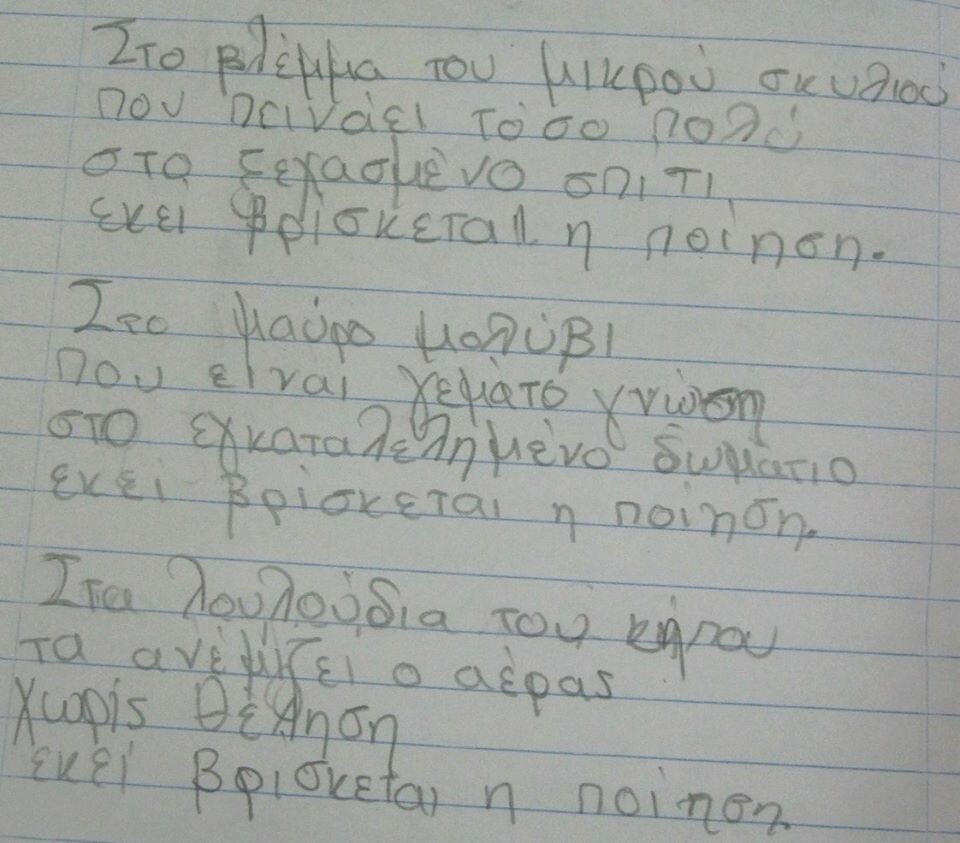 Στο βλέμμα του μικρού σκυλιού
που πεινάει τόσο πολύ
στο ξεχασμένο σπιτι,
εκεί βρίσκεται η ποίηση.
Στο μαύρο μολύβι
που είναι γεμάτο γνώση
στο εγκαταλελημένο δωμάτιο
εκεί βρίσκεται η ποίηση.
Στα λουλούδια του κήπου
τα ανέμιζει ο αέρας
χωρίς θέληση
εκεί βρισκεται η ποίηση.